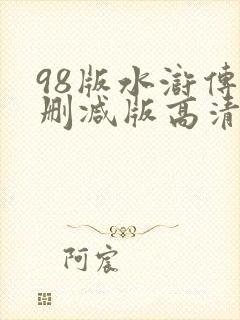 98版水滸傳
删减版高清
阿宸